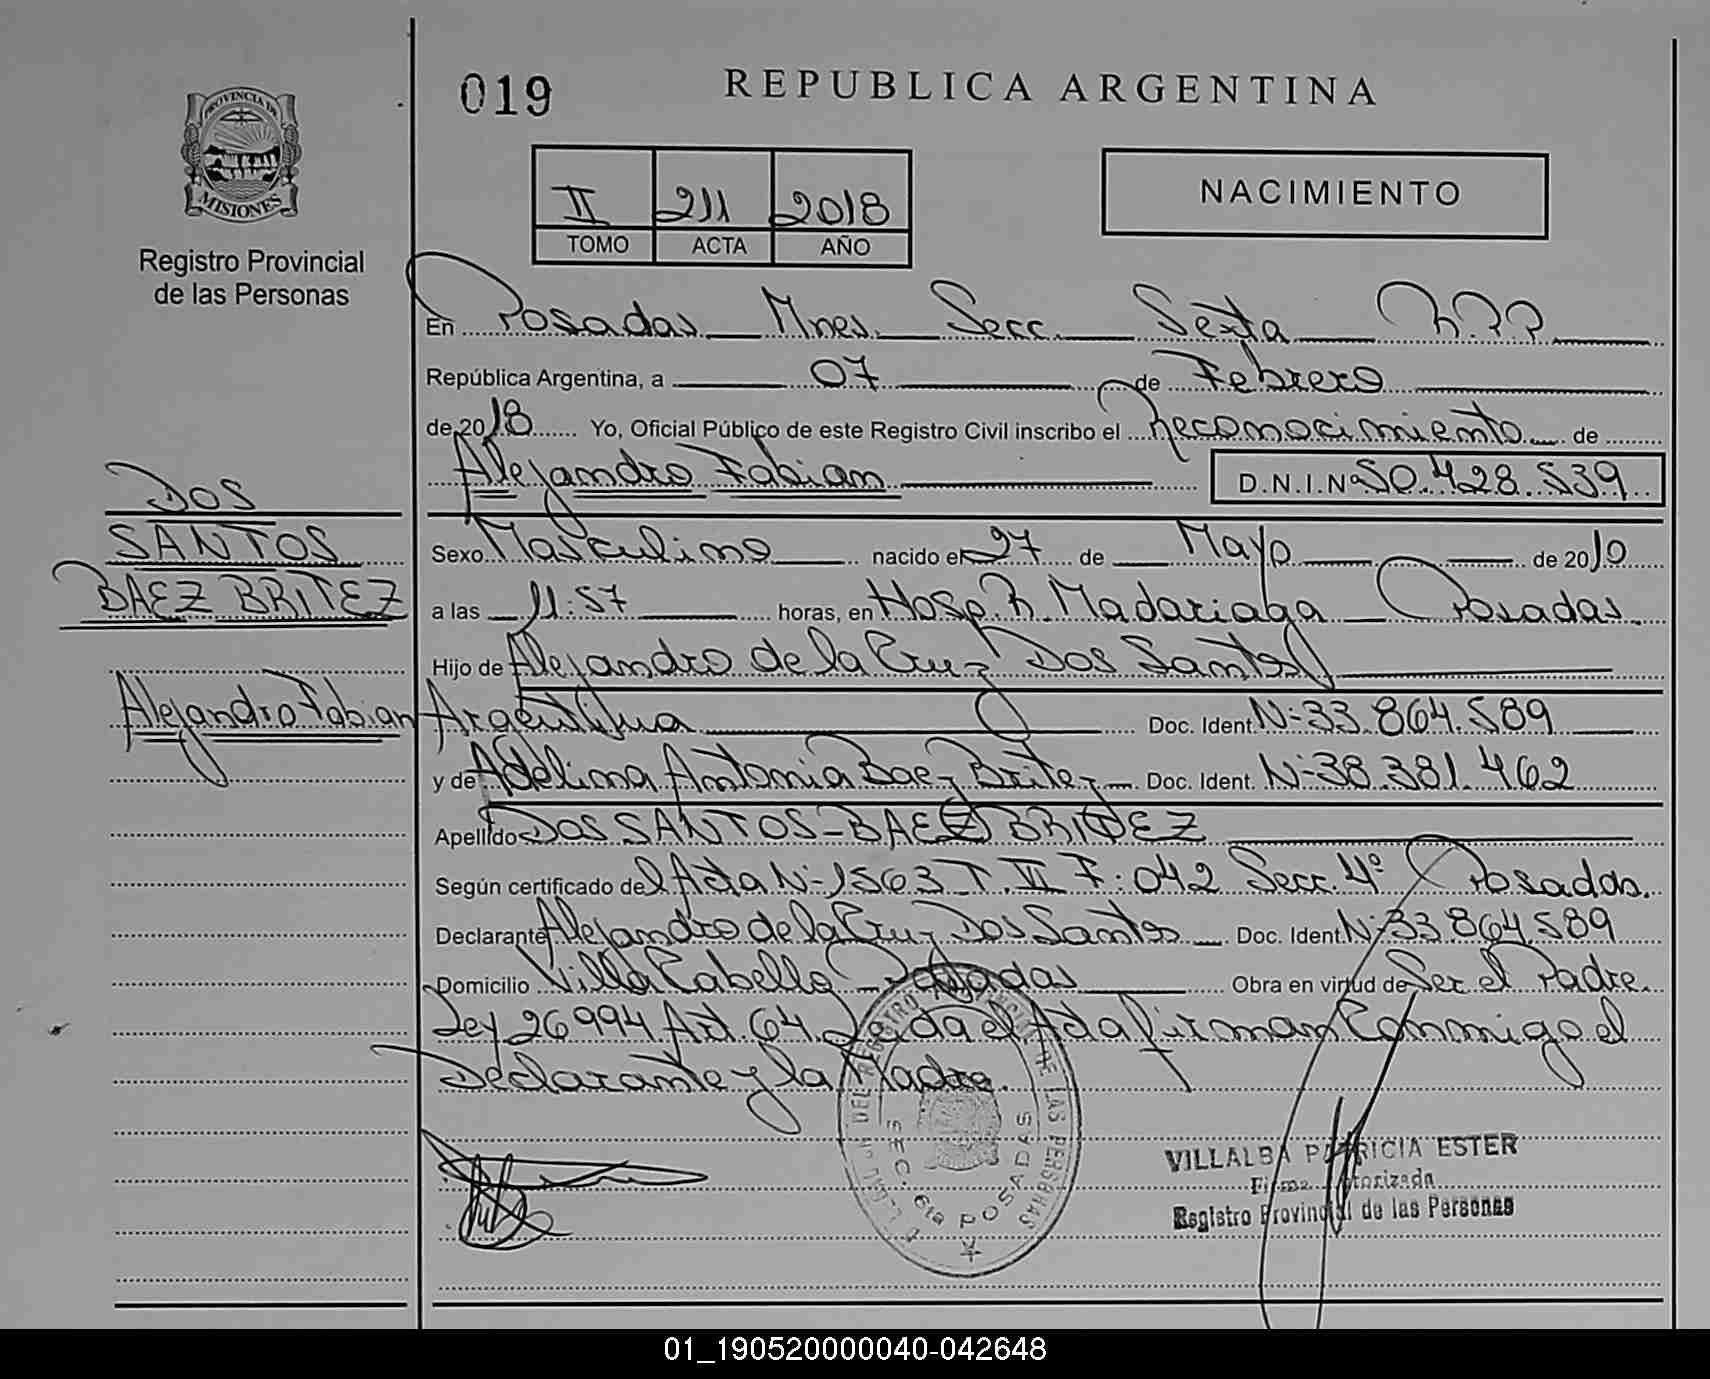 019
REPUBLICA ARGENTINA
PROVINCIA DE
MISIONES
Registro Provincial
de las Personas
II 211 2018
TOMO ACTA AÑO
NACIMIENTO
En Posadas Mnes. Secc. Sexta R.P.P
República Argentina, a 07 de Febrero
de 2018 Yo, Oficial Público de este Registro Civil inscribo el Reconocimiento de
Alejandro Fabian D.N.I.Nº 50.428.539
DOS
SANTOS
BAEZ BRITEZ
Alejandro Fabian
Sexo Masculino nacido el 27 de Mayo de 2010
a las 11:57 horas, en Hosp. R. Madariaga Posadas.
Hijo de Alejandro de la Cruz Dos Santos
Argentina Doc. Ident. Nº 33.864.589
y de Adelina Antonia Baez Britez Doc. Ident. Nº 38.381.462
Apellido DOS SANTOS-BAEZ BRITEZ
Según certificado del Acta Nº 1563 T. III F: 042 Secc. 4º Posadas.
Declarante Alejandro de la Cruz Dos Santos Doc. Ident. Nº 33.864.589
Domicilio Villa Cabello - Posadas Obra en virtud de Ser el Padre.
Ley 26994 Art. 64. Leída el Acta firman Conmigo el
Declarante y la Madre.
REGISTRO PROVINCIAL DE LAS PERSONAS
SEC. 6ta POSADAS
VILLALBA PATRICIA ESTER
Firma Autorizada
Registro Provincial de las Personas
01_190520000040-042648